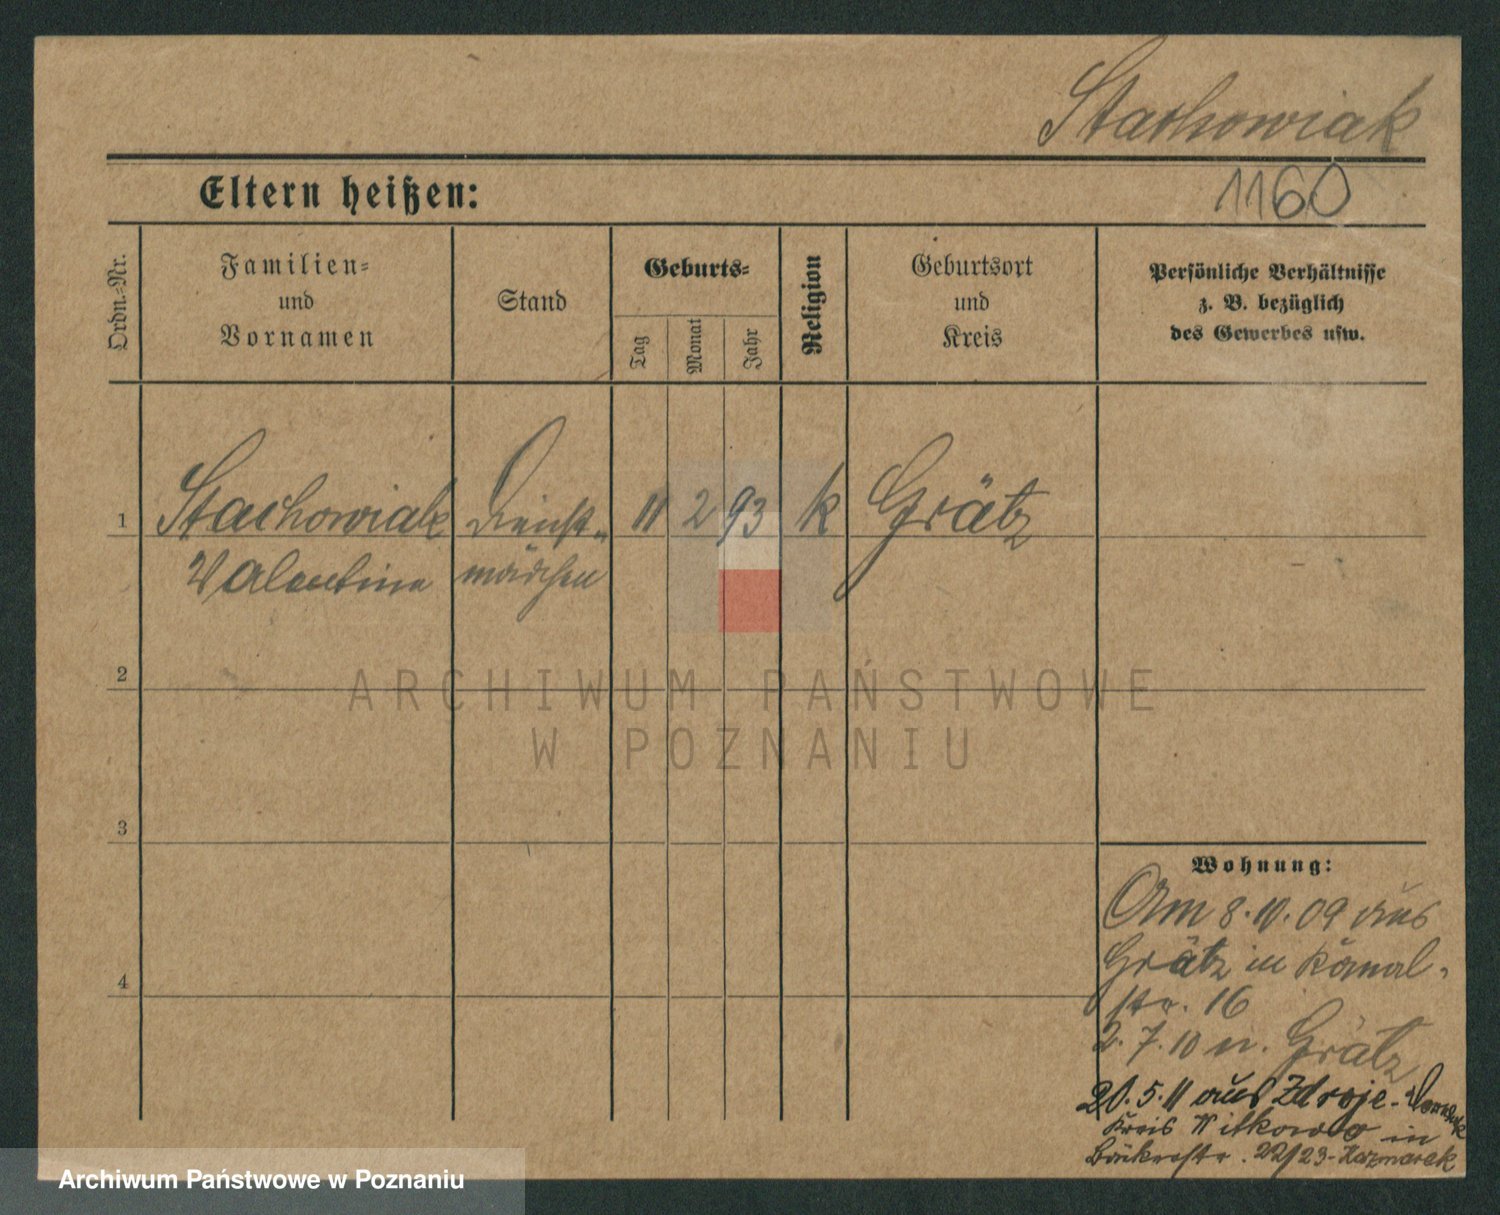 Stachowiak
Eltern heißen:
1160
Ordn.-Nr.
Familien-
und
Vornamen
Stand
Geburts-
Tag
Monat
Jahr
Religion
Geburtsort
und
Kreis
Persönliche Verhältnisse
z. B. bezüglich
des Gewerbes usw.
1 Stachowiak Dienst- 11 2 93 k Grätz
Valentine mädchen
2
3
4
Wohnung:
Am 8.10.09 aus
Grätz in Kanal-
str. 16
2.7.10 n. Grätz
20.5.11 aus Zdroje-
Kreis Witkowo in
Bäckerstr. 22/23 - Kazmarek
ARCHIWUM PAŃSTWOWE
W POZNANIU
Archiwum Państwowe w Poznaniu